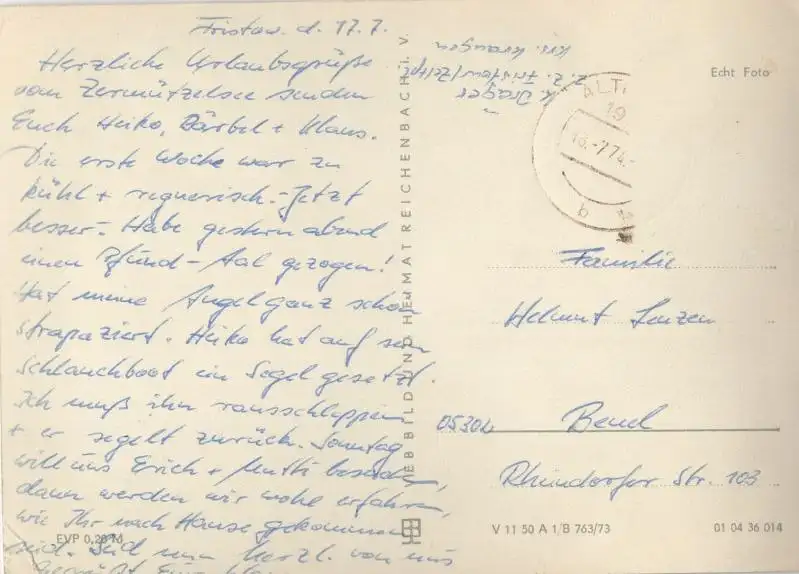 Fristow. d. 17.7.
Herzliche Urlaubsgrüße
vom Zermützelsee senden
Euch Heiko, Bärbel + Klaus.
Die erste Woche war zu
kühl + regnerisch.- Jetzt
besser.- Habe gestern abend
einen Pfund-Aal gezogen!
Hat meine Angel ganz schön
strapaziert. Heiko hat auf sein
Schlauchboot ein Segel gesetzt.
Ich muß ihn rausschleppen
+ er segelt zurück. Sonntag
will uns Erich + Mutti besuchen,
dann werden wir wohl erfahren,
wie Ihr nach Hause gekommen
seid. Seid nun herzl. von uns
gegrüßt Eure
EVP 0,20 M
VEB BILD UND HEIMAT REICHENBACH i. V.
K. Dräger
z. Z. Fristow/Zeltpl.
Krs.
Echt Foto
ALT
19
-7.74.-
b
Familie
Helmut Lenzen
05304 Beuel
Rheindorfer Str. 103
V 11 50 A 1/B 763/73
01 04 36 014